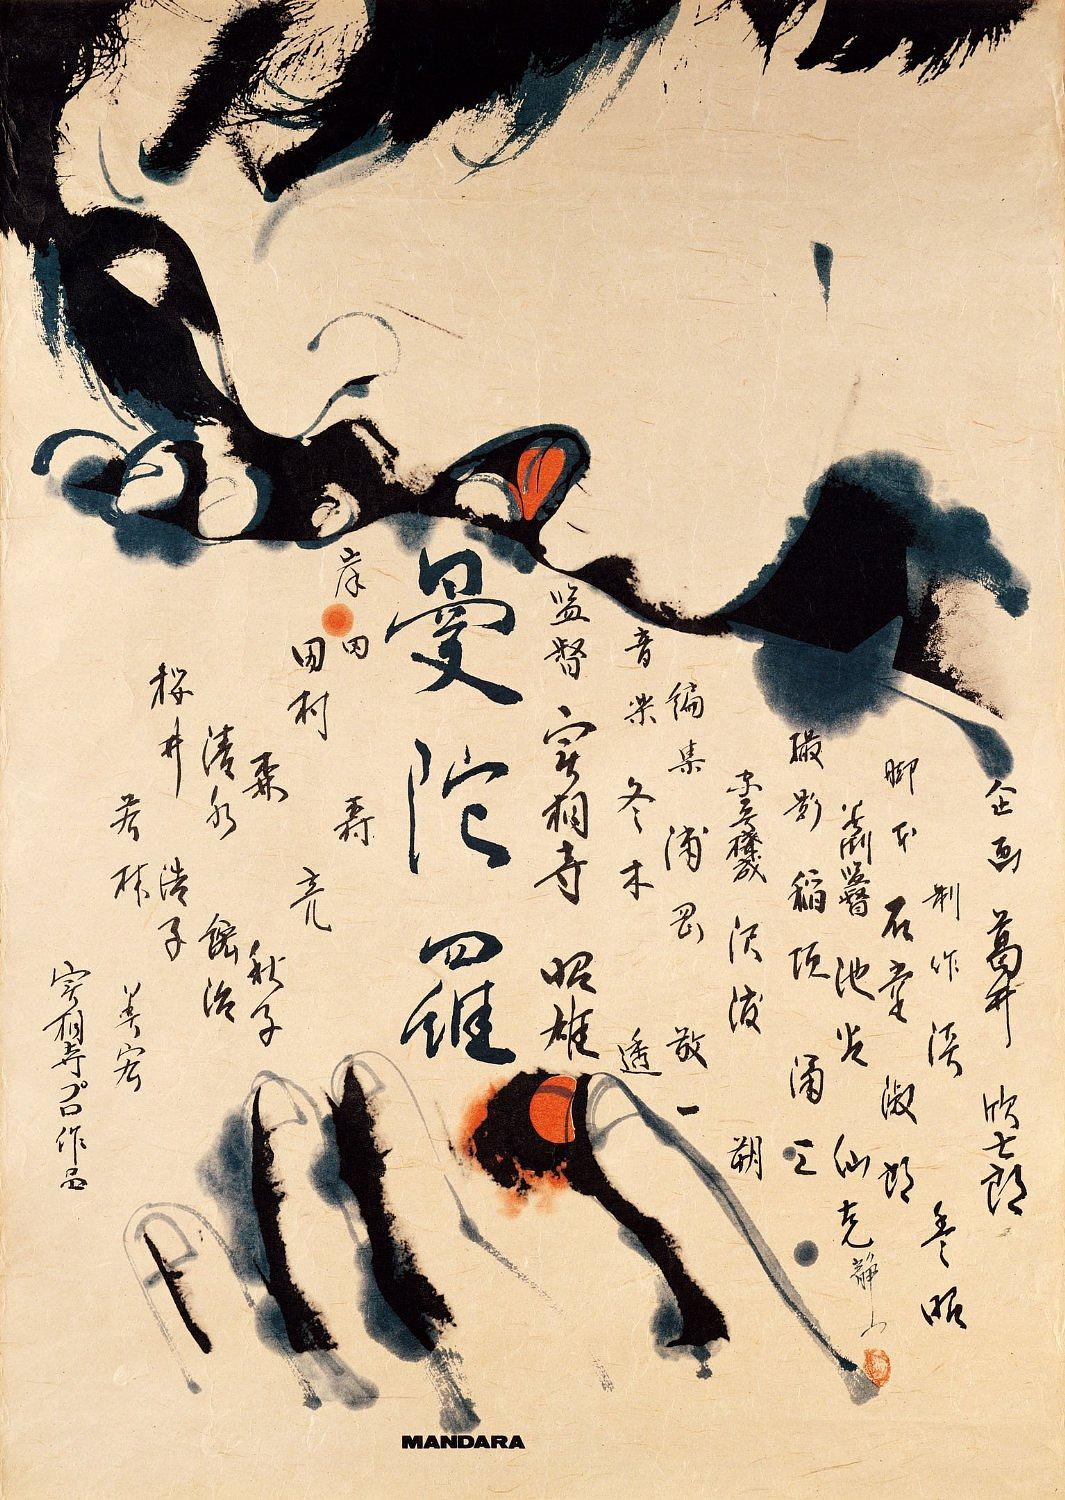 企画 葛井 欣士郎
制作 淡 豊昭
脚本 石堂 淑朗
美術監督 池谷 仙克
静山
撮影 稲垣 涌三
沢渡 朔
編集 浦岡 敬一
音楽 冬木 透
監督 実相寺 昭雄
曼陀羅
岸田 森
田村 亮
森 秋子
清水 綋治
桜井 浩子
若林 美宏
実相寺プロ作品
MANDARA